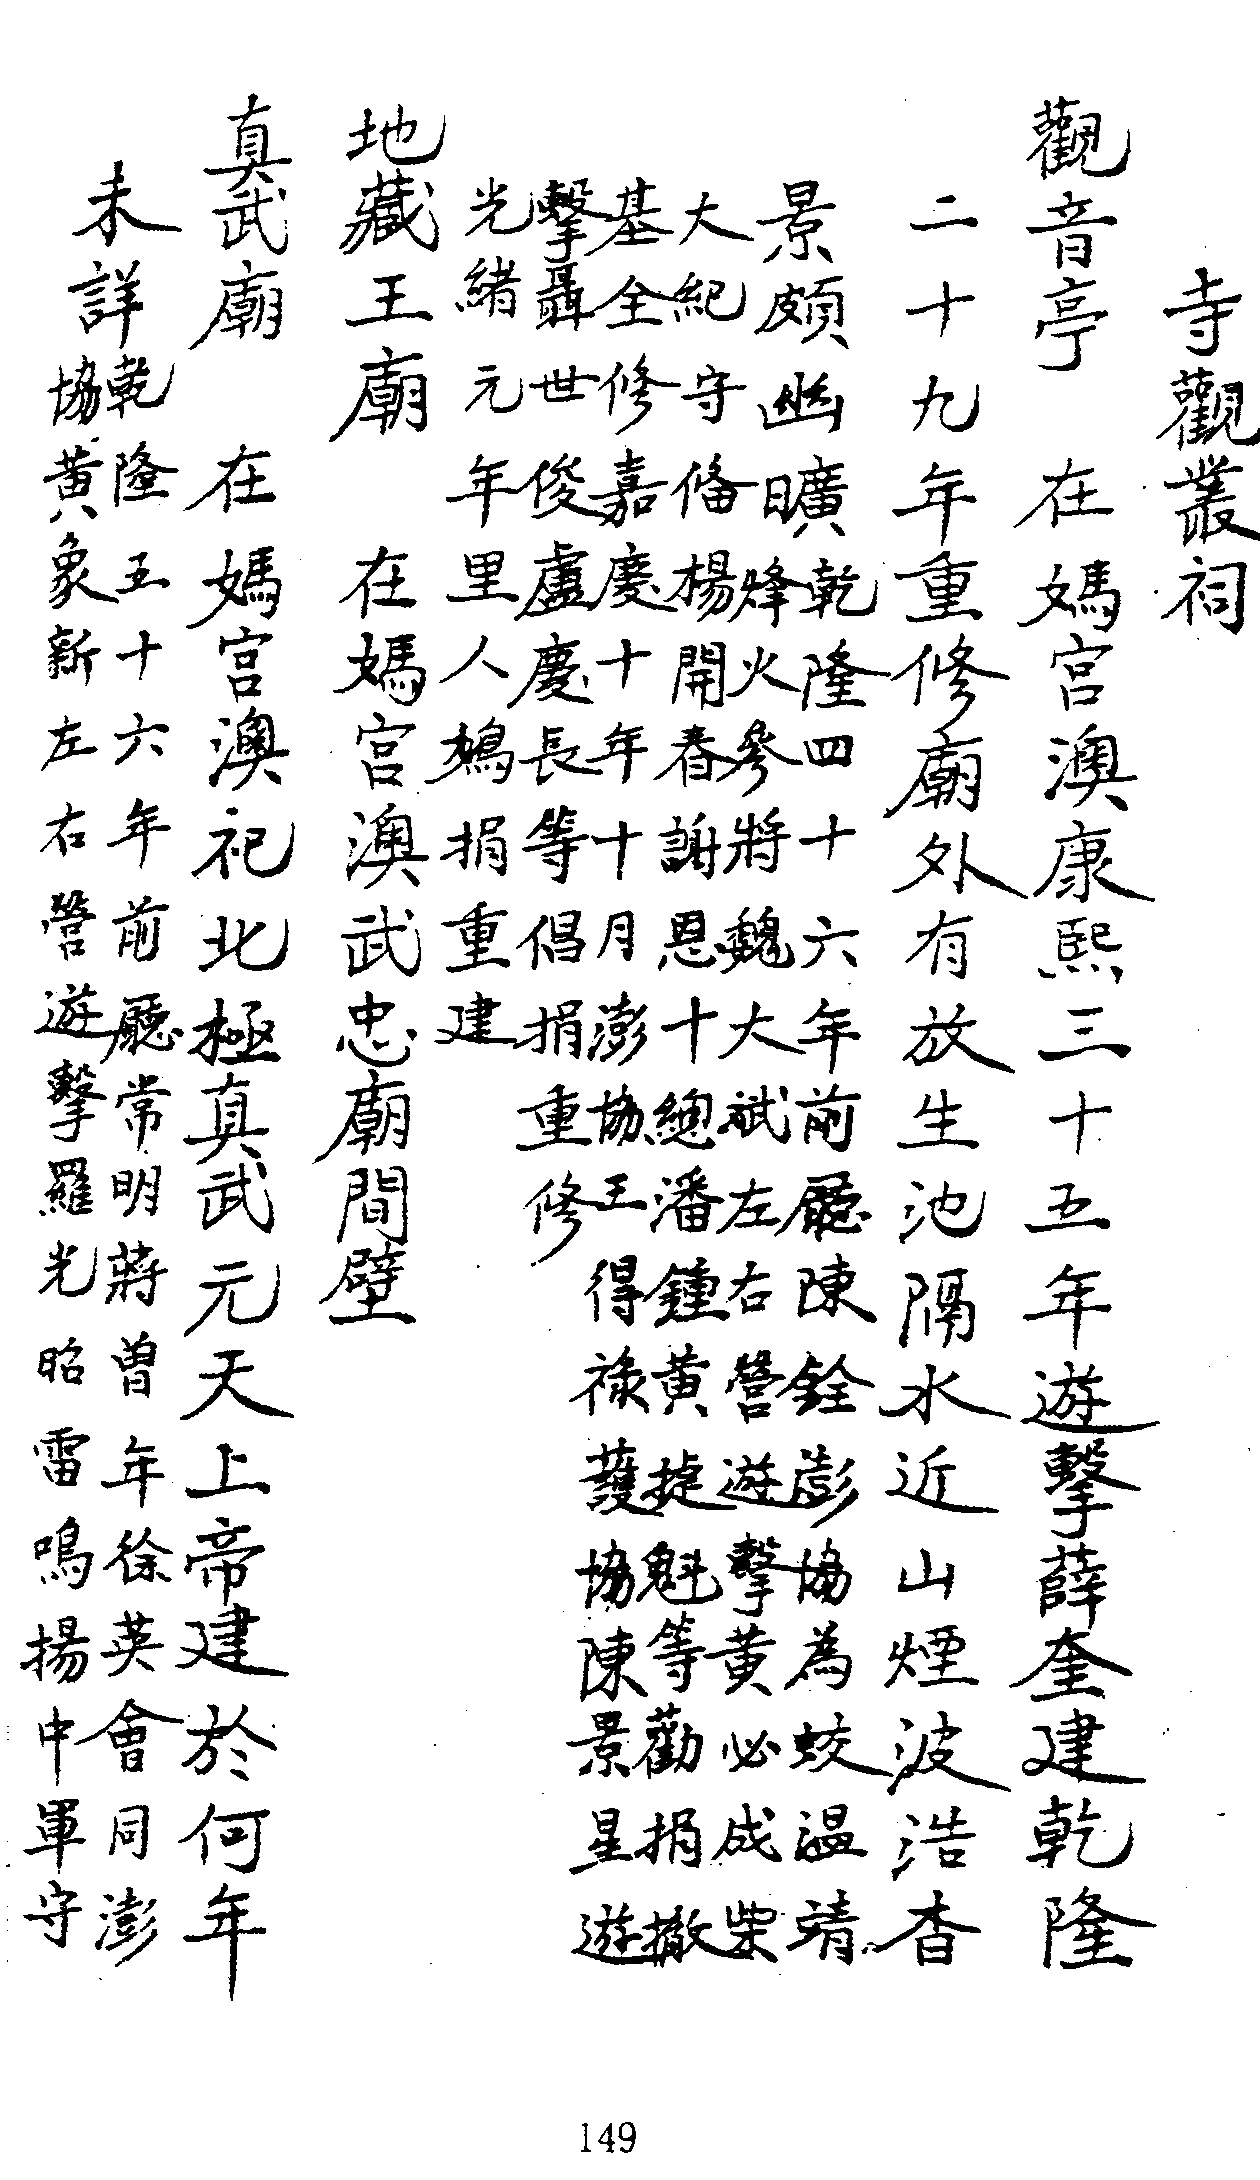 寺觀叢祠
觀音亭　在媽宮澳康熙三十五年遊擊薛奎建乾隆
二十九年重修廟外有放生池隔水近山煙波浩杳
景頗幽曠
乾隆四十六年前廳陳銓澎協為蛟溫靖
烽火參將魏大斌左右營遊擊黃必成柴
大紀守俻楊開春謝恩十總潘鍾黃捷魁等勸捐撤
基全修嘉慶十年十月澎協王得祿護協陳景星遊
擊聶世俊盧慶長等倡捐重修
光緒元年里人鷞捐重建
地藏王廟　在媽宮澳武忠廟間壁
真武廟　在媽宮澳祀北極真武元天上帝建於何年
未詳
乾隆五十六年前廳常明蔣曾年徐英會同澎
協黃象新左右營遊擊羅光昭雷鳴揚中軍守
149